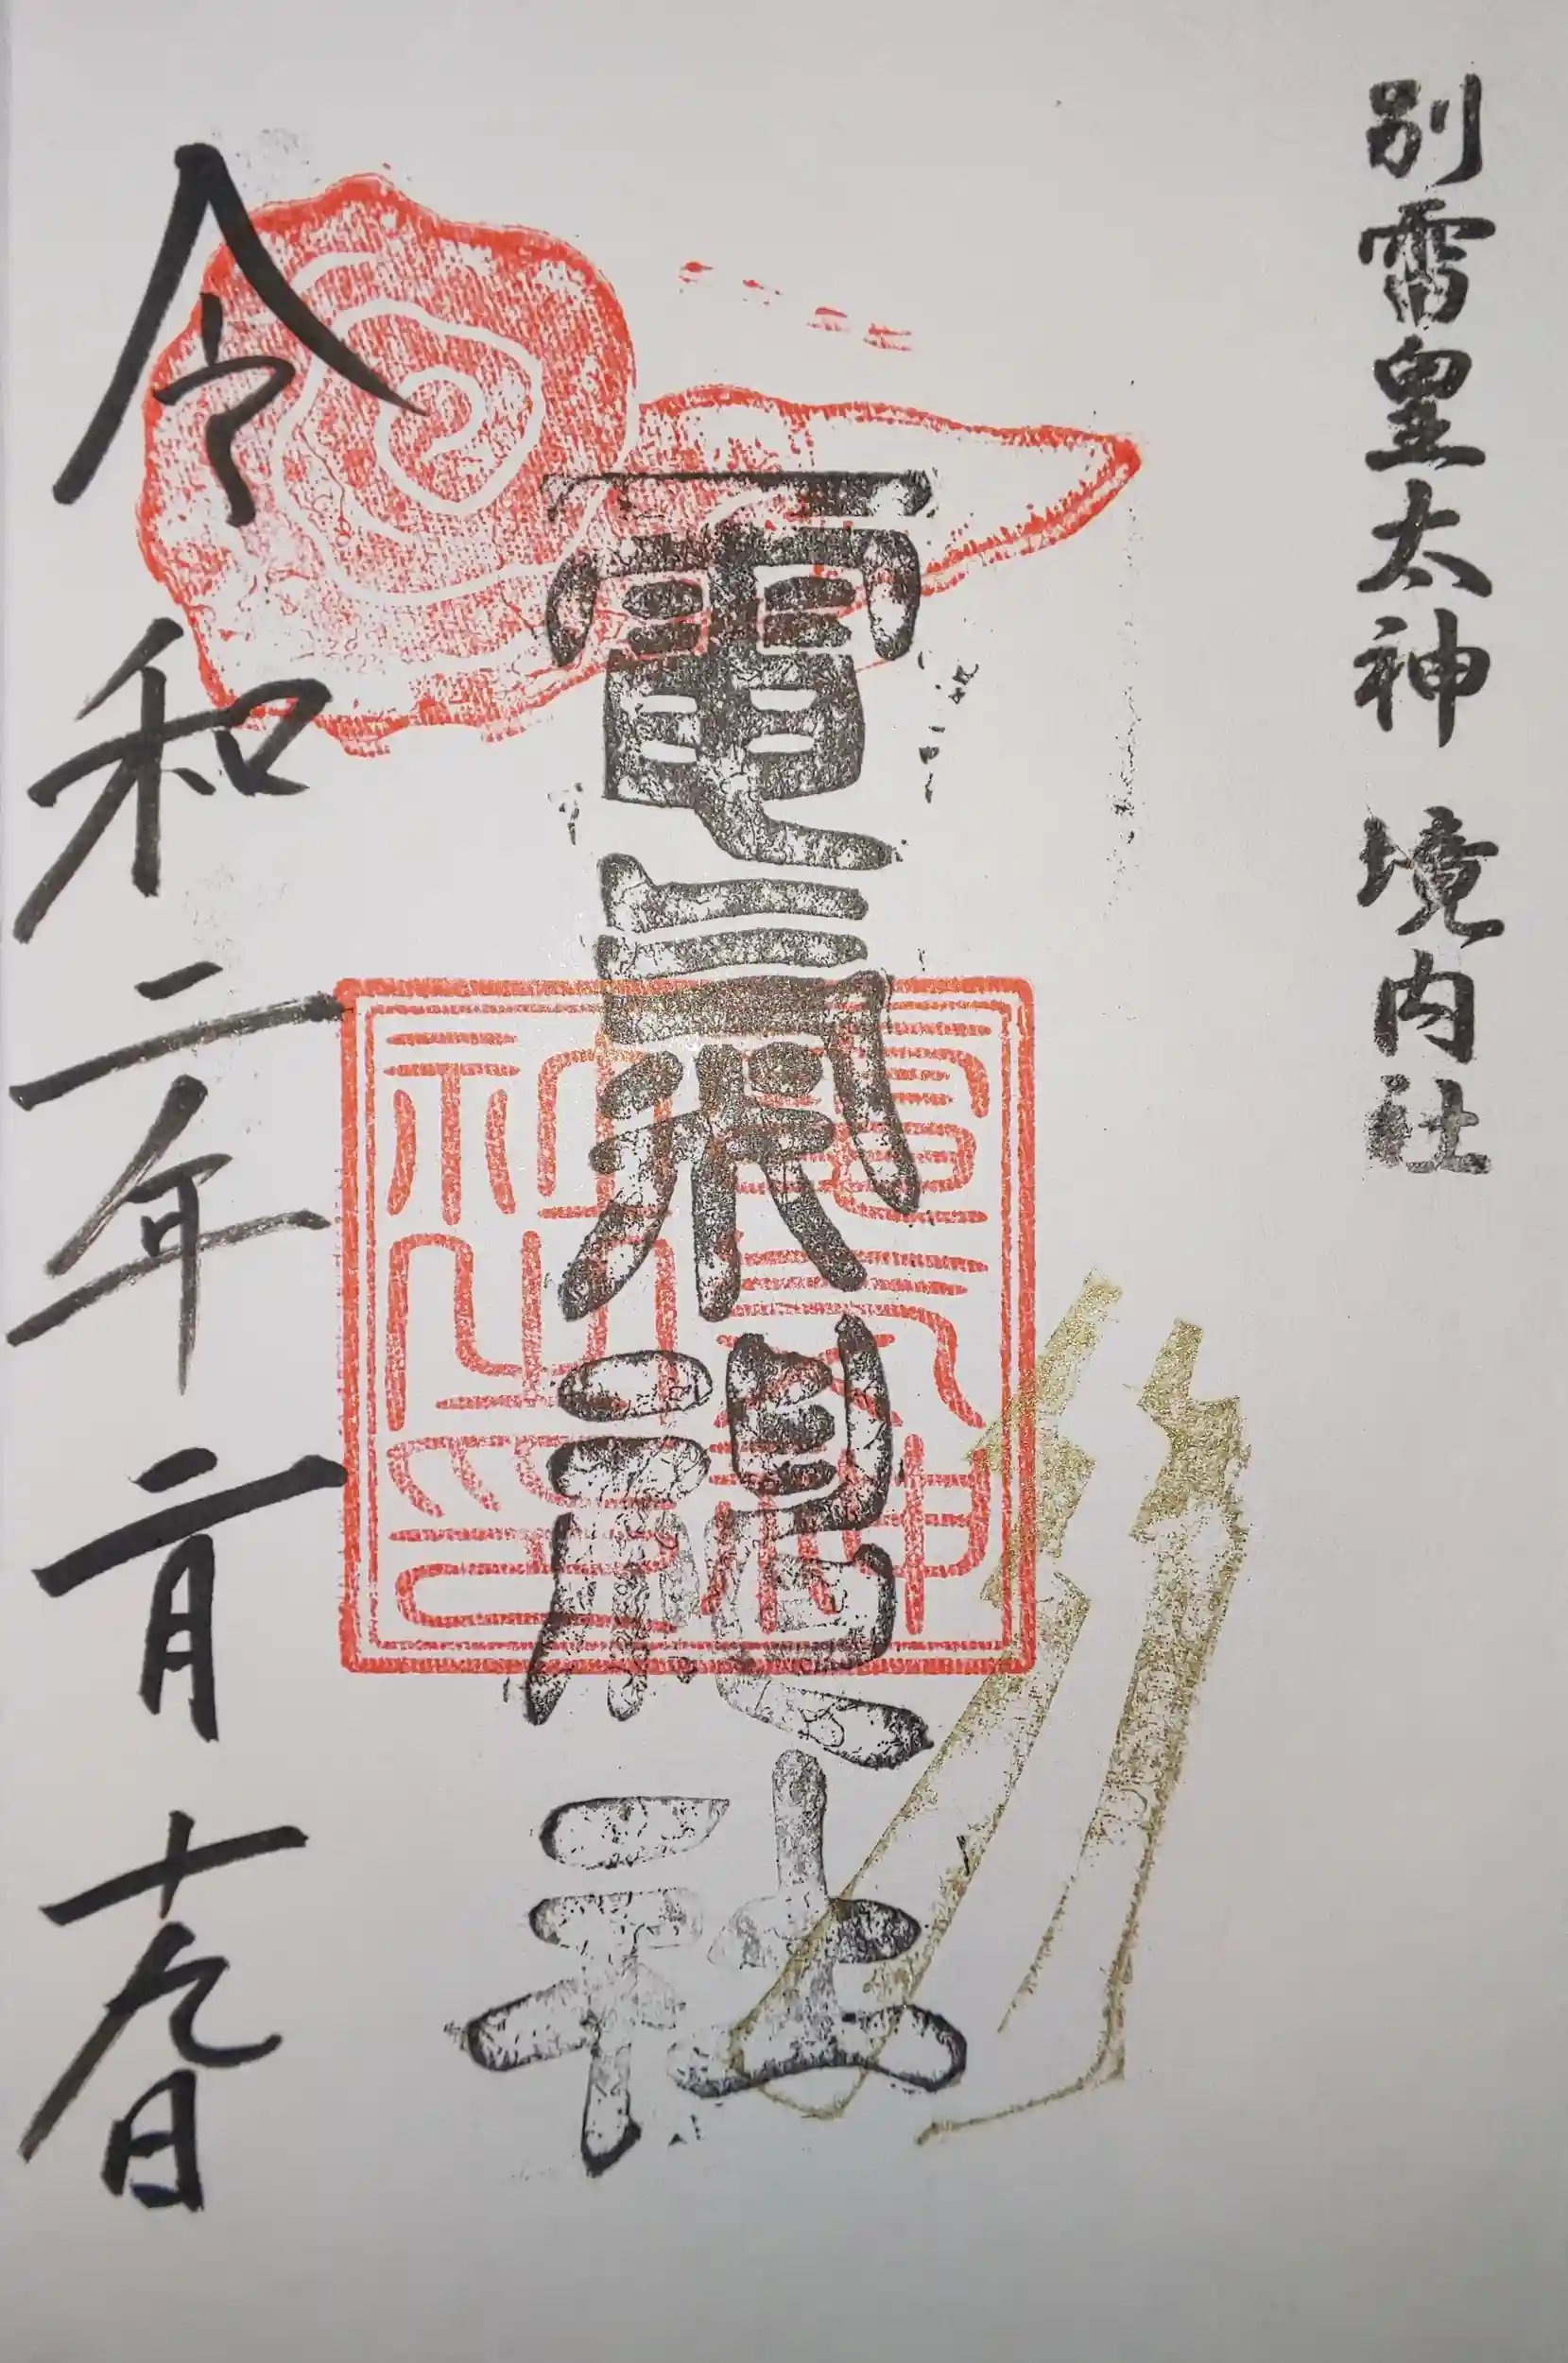 別雷皇太神 境内社
電氣神社
電氣神
社之印
令和二年二月十九日